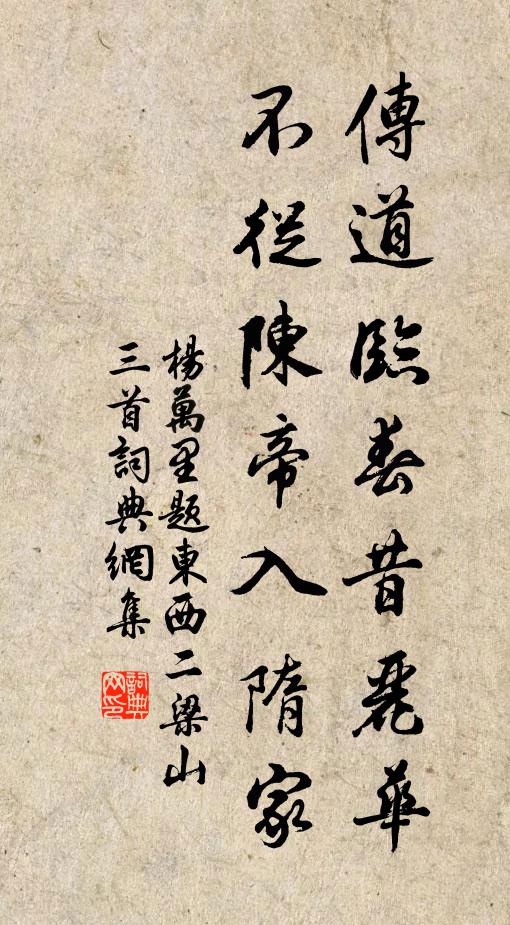 傳道臨春昔麗華
不從陳帝入隋家
楊萬里題東西二梁山
三首詞典網集
詞典網印